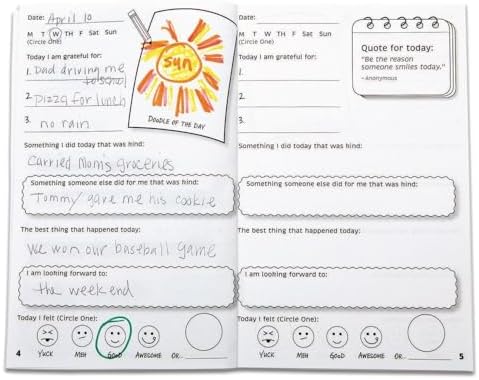 Date: April 10
M T W TH F Sat Sun
(Circle One)
Today I am grateful for:
1. Dad driving me
to school
2. pizza for lunch
3. no rain
sun
DOODLE OF THE DAY
Something I did today that was kind:
Carried Mom's groceries
Something someone else did for me that was kind:
Tommy gave me his cookie
The best thing that happened today:
we won our baseball game
I am looking forward to:
the weekend
Today I felt (Circle One):
YUCK MEH GOOD AWESOME OR...
4
Date:
M T W TH F Sat Sun
(Circle One)
Today I am grateful for:
1.
2.
3.
Quote for today:
"Be the reason
someone smiles today."
- Anonymous
Something I did today that was kind:
Something someone else did for me that was kind:
The best thing that happened today:
I am looking forward to:
Today I felt (Circle One):
YUCK MEH GOOD AWESOME OR...
5